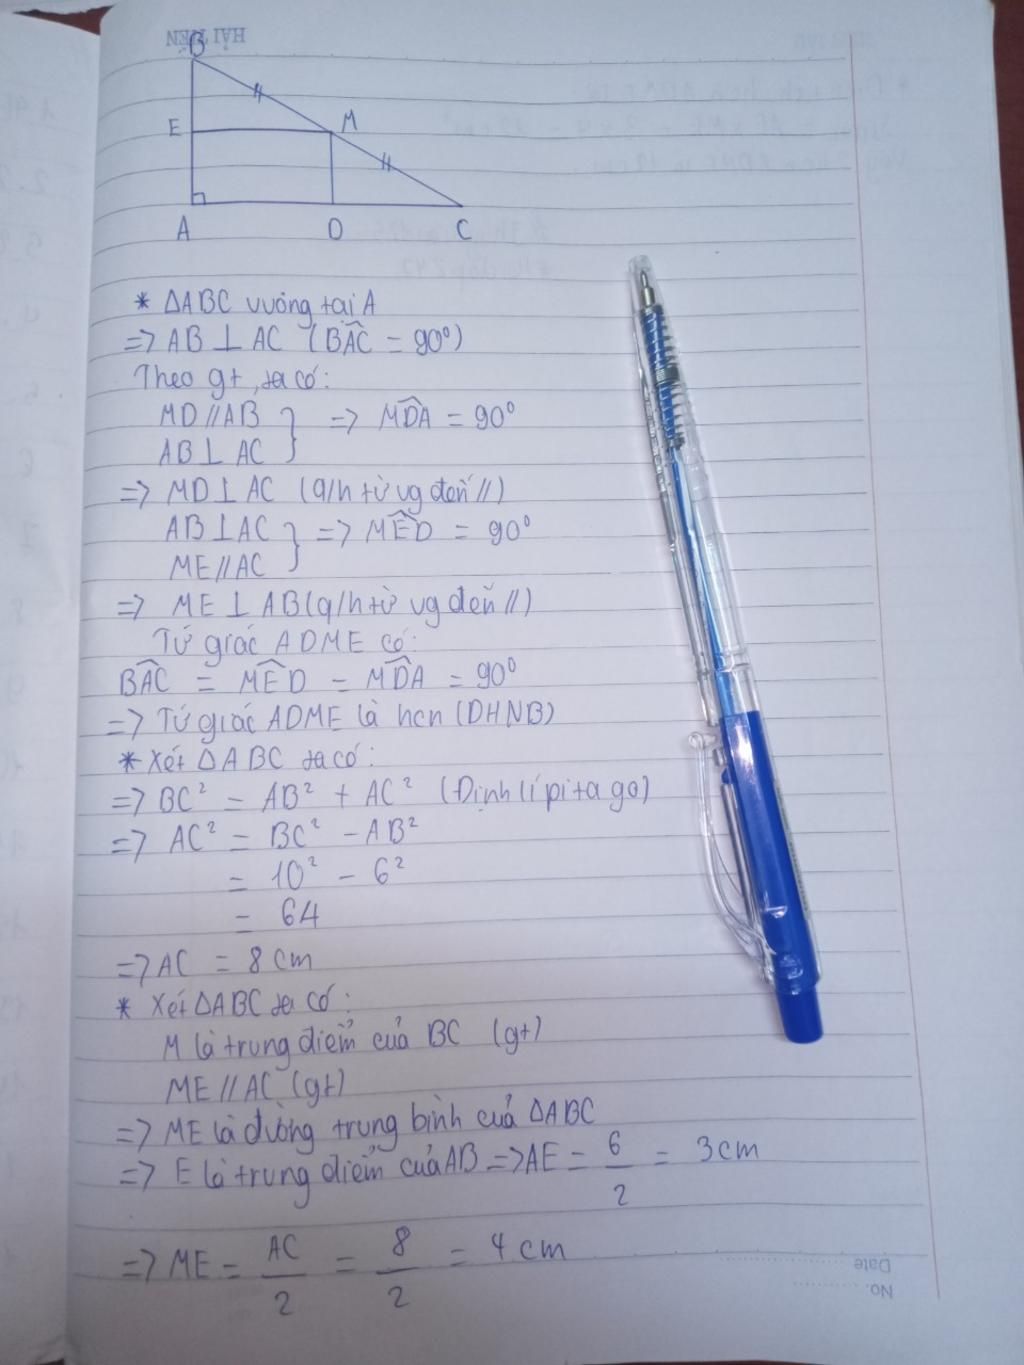 HẢI TIẾN
B
E
M
A
D
C
* ΔABC vuông tại A
=> AB ⊥ AC (BÂC = 90°)
Theo gt, ta có:
MD // AB } => MD̂A = 90°
AB ⊥ AC
=> MD ⊥ AC (q/h từ vg đến //)
AB ⊥ AC } => MÊD = 90°
ME // AC
=> ME ⊥ AB (q/h từ vg đến //)
Tứ giác ADME có:
BÂC = MÊD = MD̂A = 90°
=> Tứ giác ADME là hcn (DHNB)
* Xét ΔABC ta có:
=> BC² = AB² + AC² (Định lí pi ta go)
=> AC² = BC² - AB²
= 10² - 6²
= 64
=> AC = 8 cm
* Xét ΔABC ta có:
M là trung điểm của BC (gt)
ME // AC (gt)
=> ME là đường trung bình của ΔABC
=> E là trung điểm của AB => AE = 6/2 = 3 cm
=> ME = AC/2 = 8/2 = 4 cm
Date
No.